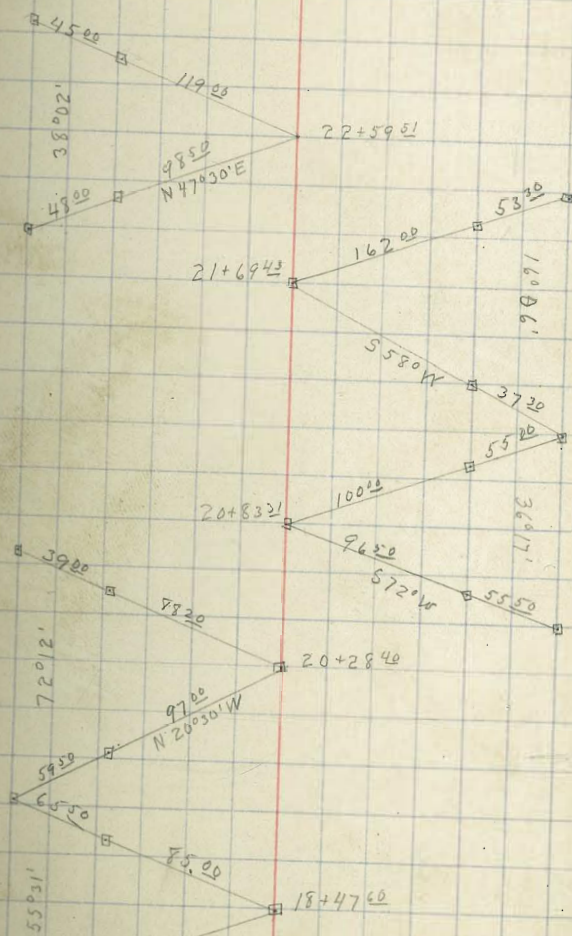 45 00
119 00
22+59 51
38°02'
98 50
N 47°30'E
48 00
53 30
162 00
21+69 43
16°06'
S 58° W
37 30
55 00
100 00
20+83 31
36°17'
96 50
S 72° W
55 50
39 00
78 20
20+28 40
72°12'
97 00
N 20°30'W
59 50
65 50
85.00
18+47 60
55°31'